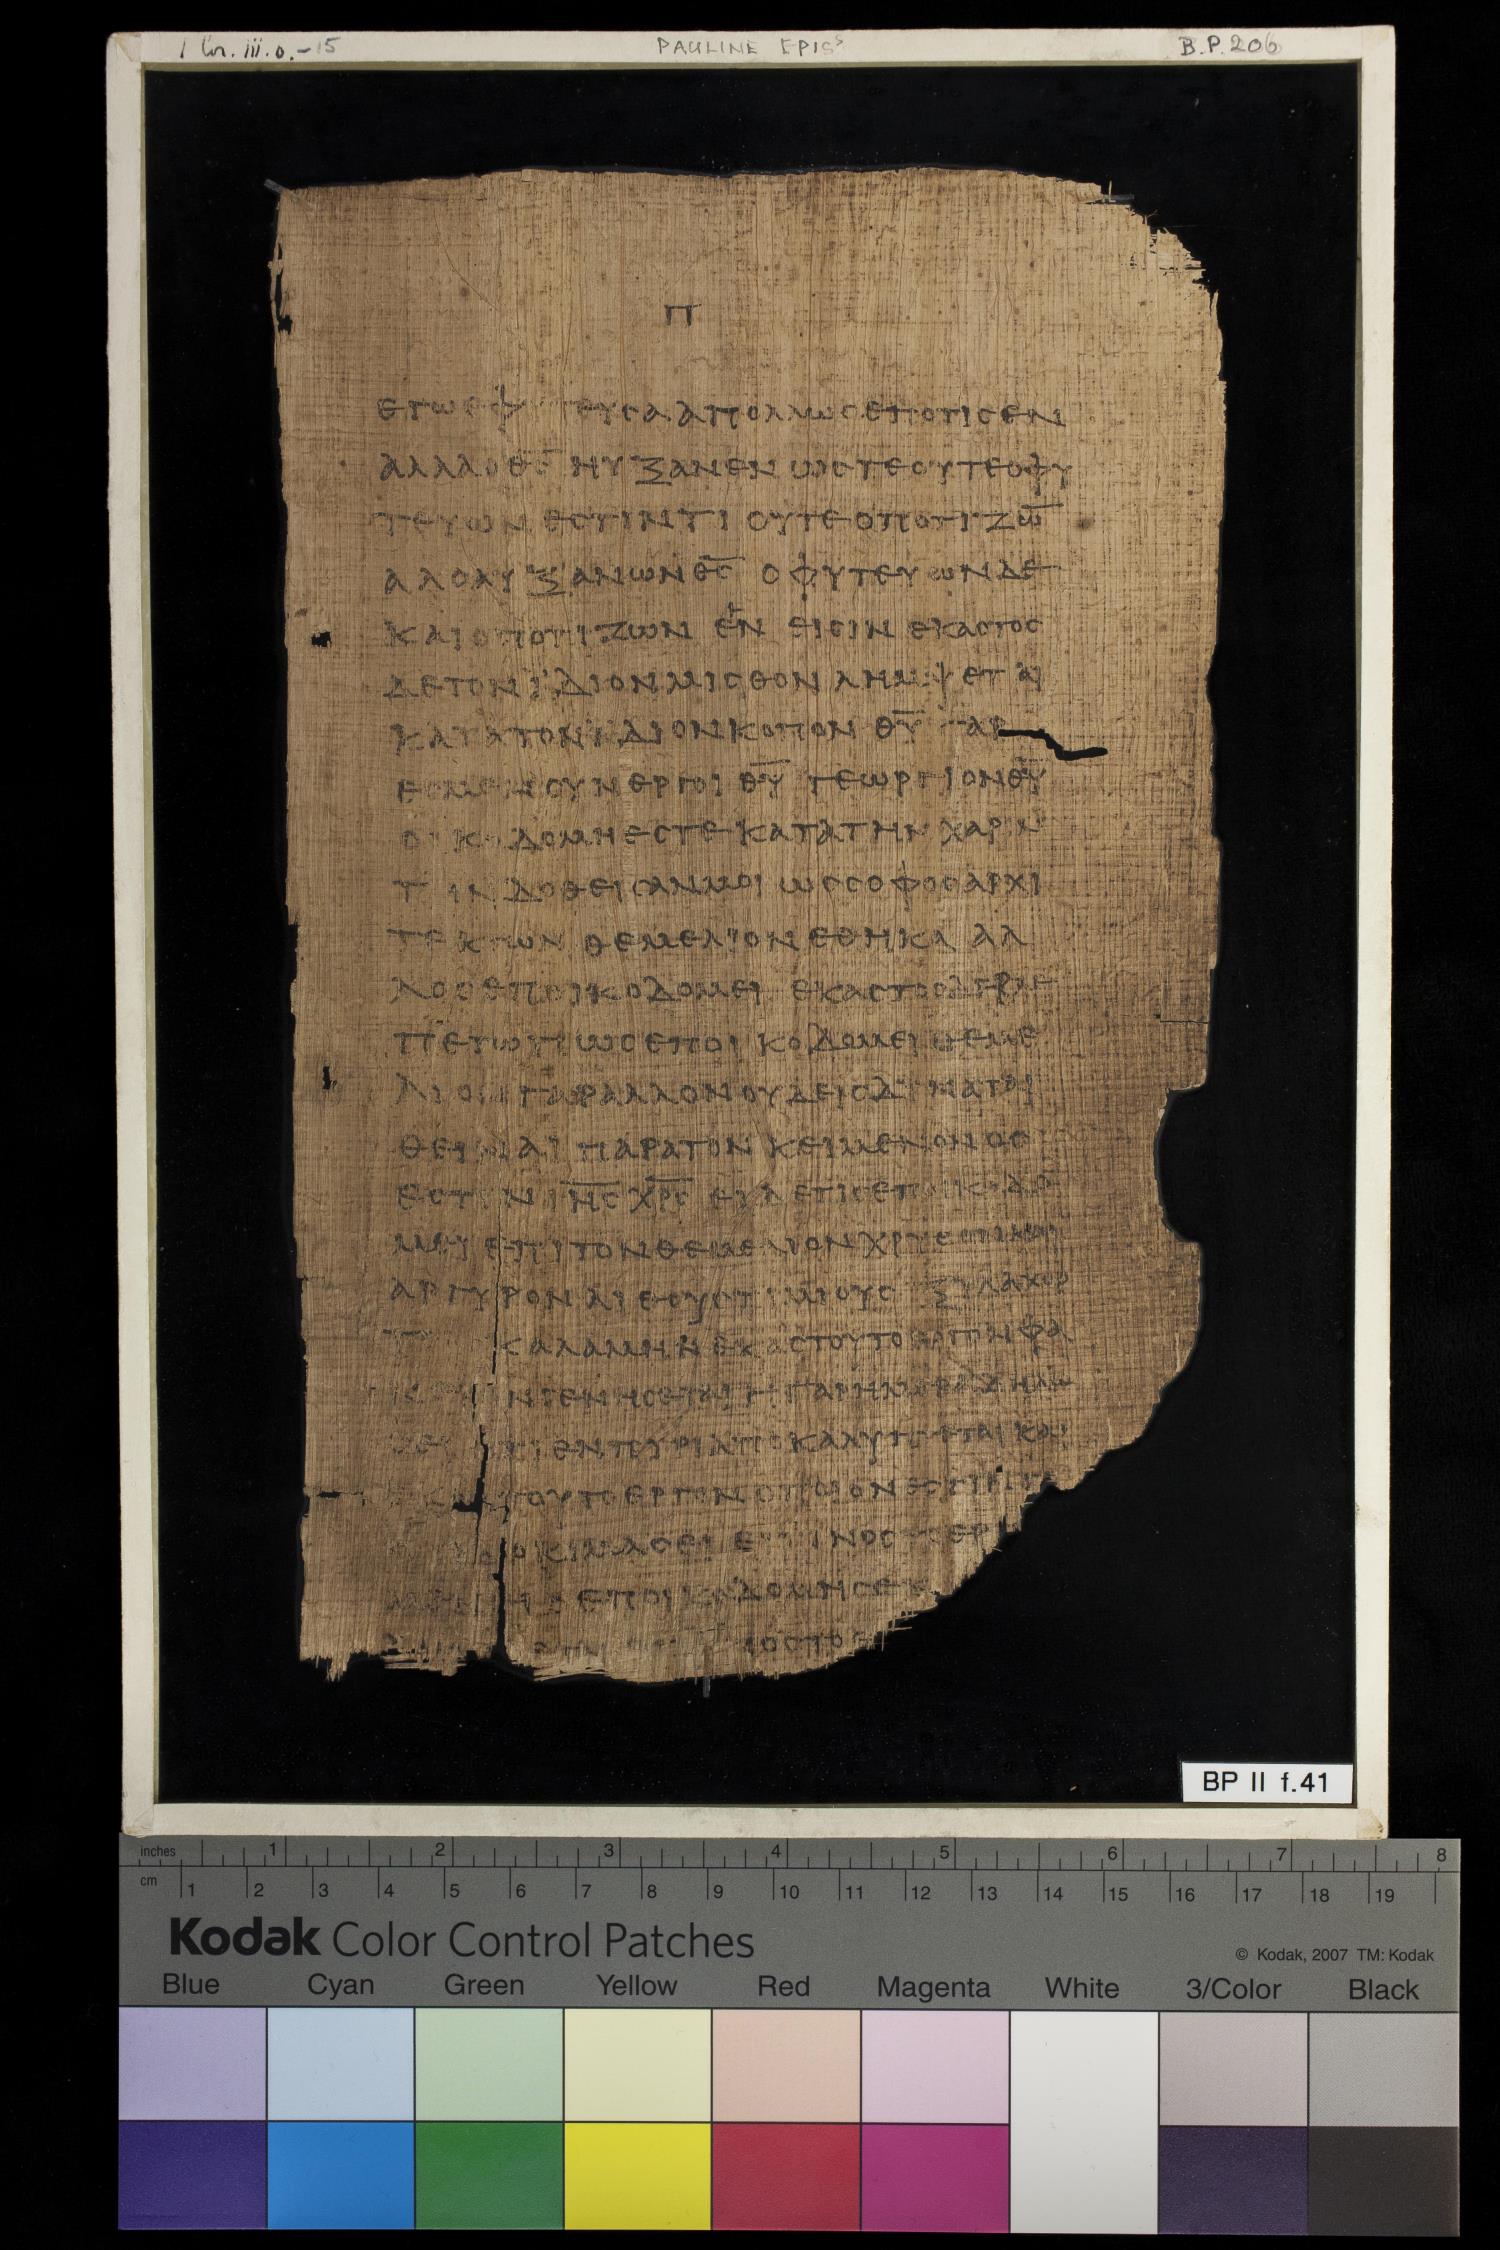 1 Cor. iii. 6.-15 PAULINE EPISˢ B.P. 206
Π
ΕΓΩΕΦΥΤΕΥСΑΑΠΟΛΛΩСΕΠΟΤΙСΕΝ
ΑΛΛΑΟΘ̅С̅ ΗΥΞΑΝΕΝ ΩСΤΕΟΥΤΕΟΦΥ
ΤΕΥΩΝ ΕСΤΙΝΤΙ ΟΥΤΕΟΠΟΤΙΖΩ̅
ΑΛΟΑΥΞΑΝΩΝΘ̅С̅ ΟΦΥΤΕΥΩΝΔΕ
ΚΑΙΟΠΟΤΙΖΩΝ ΕΝ ΕΙСΙΝ ΕΚΑСΤΟС
ΔΕΤΟΝΪΔΙΟΝΜΙСΘΟΝ ΛΗΜΨΕΤΑΙ
ΚΑΤΑΤΟΝΪΔΙΟΝΚΟΠΟΝ Θ̅Υ̅ ΓΑΡ
ΕСΜΕΝСΥΝΕΡΓΟΙ Θ̅Υ̅ ΓΕΩΡΓΙΟΝΘ̅Υ̅
ΟΙΚΟΔΟΜΗΕСΤΕ ΚΑΤΑΤΗΝ ΧΑΡΙΝ
Τ ΙΝ ΔΟΘΕΙСΑΝΜΟΙ ΩССΟΦΟСΑΡΧΙ
ΤΕΚΤΩΝ ΘΕΜΕΛΙΟΝΕΘΗΚΑ ΑΛ
ΛΟСΕΠΟΙΚΟΔΟΜΕΙ ΕΚΑСΤΟСΔΕΒΛΕ
ΠΕΤΩΠΩСΕΠΟΙΚΟΔΟΜΕΙ ΘΕΜΕ
ΛΙΟΝΓΑΡΑΛΛΟΝΟΥΔΕΙСΔΥΝΑΤΑΙ
ΘΕΙΝΑΙ ΠΑΡΑΤΟΝ ΚΕΙΜΕΝΟΝ ΟС
ΕСΤΙΝ Ι̅Η̅С̅ Χ̅Ρ̅С̅ ΕΙΔΕΤΙСΕΠΟΙΚΟΔΟ
ΜΕΙ ΕΠΙΤΟΝΘΕΜΕΛΙΟΝΧΡΥСΙΟΝ
ΑΡΓΥΡΟΝ ΛΙΘΟΥСΤΙΜΙΟΥС ΞΥΛΑΧΟΡ
Τ ΚΑΛΑΜΗΝ ΕΚΑСΤΟΥΤΟΕΡΓΟΝΦΑ
ΝΓΕΝΗСΕΤΑΙ ΗΓΑΡΗΜΕΡΑΔΗΛΩ
СΕΙ ΟΤΙΕΝΠΥΡΙΑΠΟΚΑΛΥΠΤΕΤΑΙ ΚΑΙ
ΕΚΑСΤΟΥΤΟΕΡΓΟΝΟΠΟΙΟΝΕСΤΙΝ
ΔΟΚΙΜΑСΕΙ Ε ΤΙΝΟСΤΟΕΡΓ
ΜΕΝ ΕΠΟΙΚΟΔΟΜΗСΕΝ
BP II f.41
inches 1 2 3 4 5 6 7 8
cm 1 2 3 4 5 6 7 8 9 10 11 12 13 14 15 16 17 18 19
Kodak Color Control Patches
© Kodak, 2007 TM: Kodak
Blue Cyan Green Yellow Red Magenta White 3/Color Black